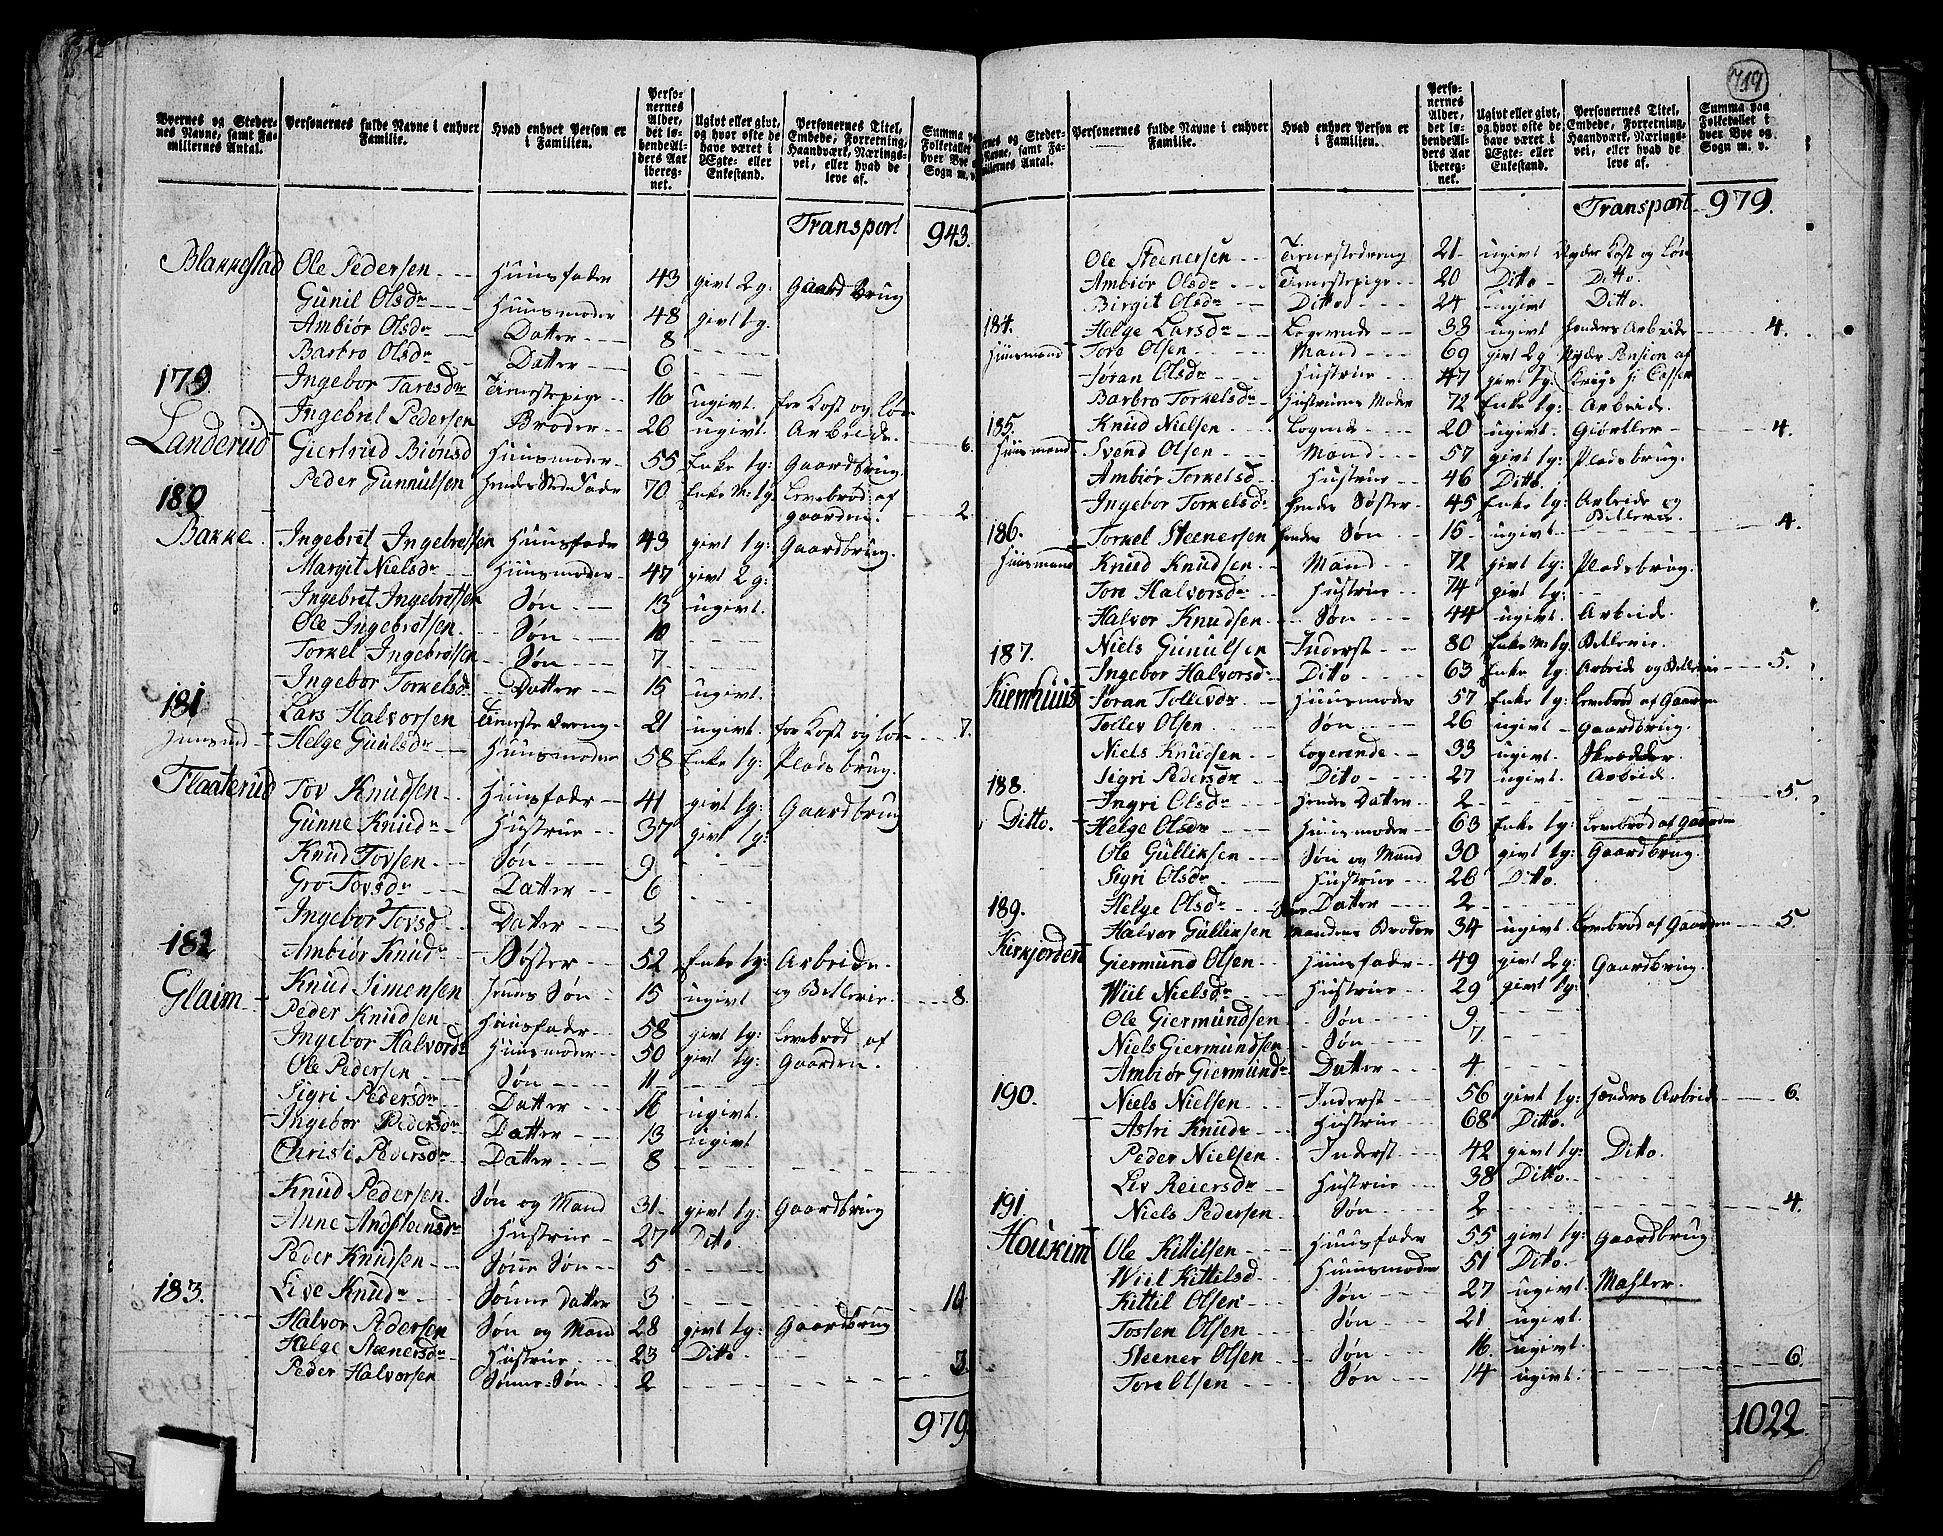 Byernes og Steder-
nes Navne, samt Fa-
miliernes Antal.
Personernes fulde Navne i enhver
Familie.
Hvad enhver Person er
i Familien.
Perso-
nernes
Alder,
det lø-
bende Al-
ders Aar
iberegnet.
Ugivt eller givt,
og hvor ofte de
have været i
Ægte- eller
Enkestand.
Personernes Titel,
Embede, Forretning,
Haandværk, Nærings-
vei, eller hvad de
leve af.
Summa
Folketallet
hver Bye og
Sogn m. v.
Transport 943.
Blakkestad Ole Pedersen Huusfader 43 givt 2 g: Gaard brug
Gunil Olsdr Huusmoder 48 givt 1 g.
Ambiør Olsdr Datter 8
Barbro Olsdr Datter 6
179. Ingebor Taresdr Tienestepige 16 ugivt. for Kost og løn
Ingebret Pedersen Broder 26 ugivt. Arbeide. 6.
Landerud Giertrud Biønsd Huusmoder 55 Enke 1 g: Gaardbrug.
Peder Gunnulsen Hendes Stedfader 70 Enke M: 1 g Levebrød af
180 gaarden. 2.
Bakke Ingebret Ingebretsen Huusfader 43 givt 1 g: Gaardbrug.
Margit Nielsdr Huusmoder 47 givt 2 g:
Ingebret Ingebretsen Søn 13 ugivt.
Ole Ingebretsen. Søn 10
Torkel Ingebretsen Søn 7
Ingebor Torkelsd. Datter 15 ugivt.
181 Lars Halvorsen Tieneste dreng 21 ugivt. for Kost og løn 7.
Helge Guulsdr Huusmoder 58 Enke 1 g: Pladsbrug.
Flaaterud Tov Knudsen Huusfader 41 givt 1 g: Gaardbrug
Gunne Knudr Hustrue 37 givt 1 g:
Knud Tovsen Søn 9
Gro Tovsdr Datter 6
Ingebor Tovsd Datter 3
182 Ambiør Knudr Søster 52 Enke 1 g: Arbeide.
Knud Simensen Hendes Søn 15 ugivt og Betlerie. 8.
Glaim Peder Knudsen Huusfader 58 givt 1 g: Levebrød af
Ingebor Halvordr Huusmoder 50 givt 1 g: Gaarden.
Ole Pedersen Søn 11
Sigri Pedersdr Datter 16 ugivt.
Ingebor Pedersdr Datter 13 ugivt
Christi Pedersdr Datter 8
Knud Pedersen. Søn og Mand 31 givt 1 g: Gaardbrug
Anne Andsteensdr Hustrue 27 Ditto.
Peder Knudsen Sønne Søn 5
183. Live Knudr Sønne Datter 3 10
Halvor Pedersen Søn og Mand 28 givt 1 g: Gaardbrug
Helge Steenersdr Hustrue 23 Ditto
Peder Halvorsen Sønne Søn 2 3.
979.
719
nes og Steder-
Navne, samt Fa-
miliernes Antal.
Personernes fulde Navne i enhver
Familie.
Hvad enhver Person er
i Familien.
Perso-
nernes
Alder,
det lø-
bende Al-
ders Aar
iberegnet.
Ugivt eller givt,
og hvor ofte de
have været i
Ægte- eller
Enkestand.
Personernes Titel,
Embede, Forretning,
Haandværk, Nærings-
vei, eller hvad de
leve af.
Summa paa
Folketallet i
hver Bye og
Sogn m. v.
Transport 979.
Ole Steenersen Tienestedreng 21 ugivt Nyder Kost og Løn
Ambiør Olsdr Tienestepige 20 Ditto Ditto.
Birgit Olsdr Ditto 24 ugivt Ditto.
184. Helge Larsdr Logerende 38 ugivt hendes Arbeide 4.
Huusmand Tore Olsen Mand 69 givt 2 g Nyder Pension af
Søran Olsdr Hustrue 47 givt 1 g: Krigs Cassen
Barbro Torkelsdr Hustruens Moder 72 Enke 1 g: Arbeide.
185. Knud Nielsen Logerende 20 ugivt. Giørtler 4.
Huusmand Svend Olsen Mand 57 givt 1 g: Pladsbrug.
Ambiør Torkelsd Hustrue 46 Ditto.
Ingebor Torkelsdr Hendes Søster 45 Enke 1 g: Arbeide og
Betlerie.
186. Torkel Steenersen Hendes Søn 15 ugivt. 4.
Huusmand Knud Knudsen Mand 72 givt 1 g: Pladsbrug.
Tore Halvorsdr Hustrue 74 givt 1 g:
Halvor Knudsen Søn 44 ugivt. Arbeide.
187. Niels Gunulsen Inderst 80 Enke M 1 g Betlerie.
Ingebor Halvorsd Ditto 63 Enke 1 g: Arbeide og Betlerie 5.
Kiemhuus Søran Tollevdr Huusmoder 57 Enke 1 g: Levebrød af Gaarden
Tollev Olsen Søn 26 ugivt Gaardbrug.
Niels Knudsen Logerende 33 ugivt. Skrædder
188. Sigri Pedersdr Ditto 27 ugivt. Arbeide.
Ingri Olsdr Hendes Datter 2 5.
Ditto. Helge Olsdr Huusmoder 63 Enke 1 g: Levebrød af Gaarden
Ole Gulliksen Søn og Mand 30 givt 1 g: Gaardbrug.
Sigri Olsdr Hustrue 26 Ditto.
189. Helge Olsdr Datter 2
Halvor Gulliksen Mandens Broder 34 ugivt. Levebrød af Gaarden 5.
Kirkjorden Giermund Olsen Huusfader 49 givt 2 g: Gaardbrug.
Wiil Nielsdr Hustrue 29 givt 1 g:
Ole Giermundsen Søn 9
Niels Giermundsen Søn 7
Ambiør Giermundr Datter 4.
190. Niels Nielsen Inderst 56 givt 1 g: Hænders Arbeide 6.
Astri Knudr Hustrue 68 Ditto.
Peder Nielsen Inderst 42 givt 1 g: Ditto.
Liv Reiersdr Hustrue 38 Ditto.
191. Niels Pedersen Søn 2 4.
Houkim Ole Kittilsen Huusfader 55 givt 1 g: Gaardbrug
Wiil Kittilsd Huusmoder 51 Ditto.
Kittil Olsen Søn 27 ugivt. Mahler.
Tosten Olsen Søn 21 ugivt.
Steener Olsen Søn 16. ugivt.
Tore Olsen Søn 14 ugivt. 6.
1022.